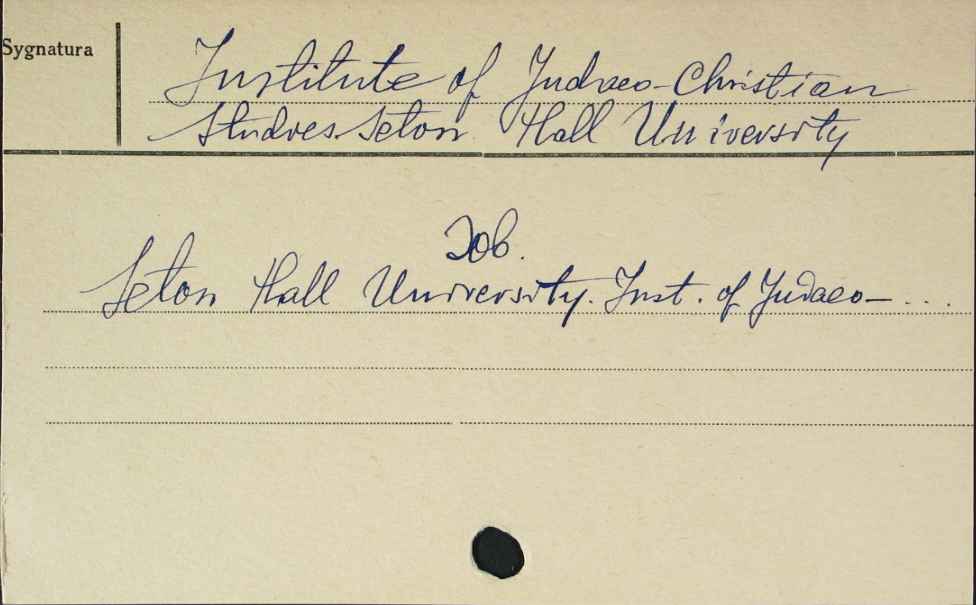 Sygnatura
Institute of Judaeo-Christian
Studies Seton Hall University
Zob.
Seton Hall University. Inst. of Judaeo- ...